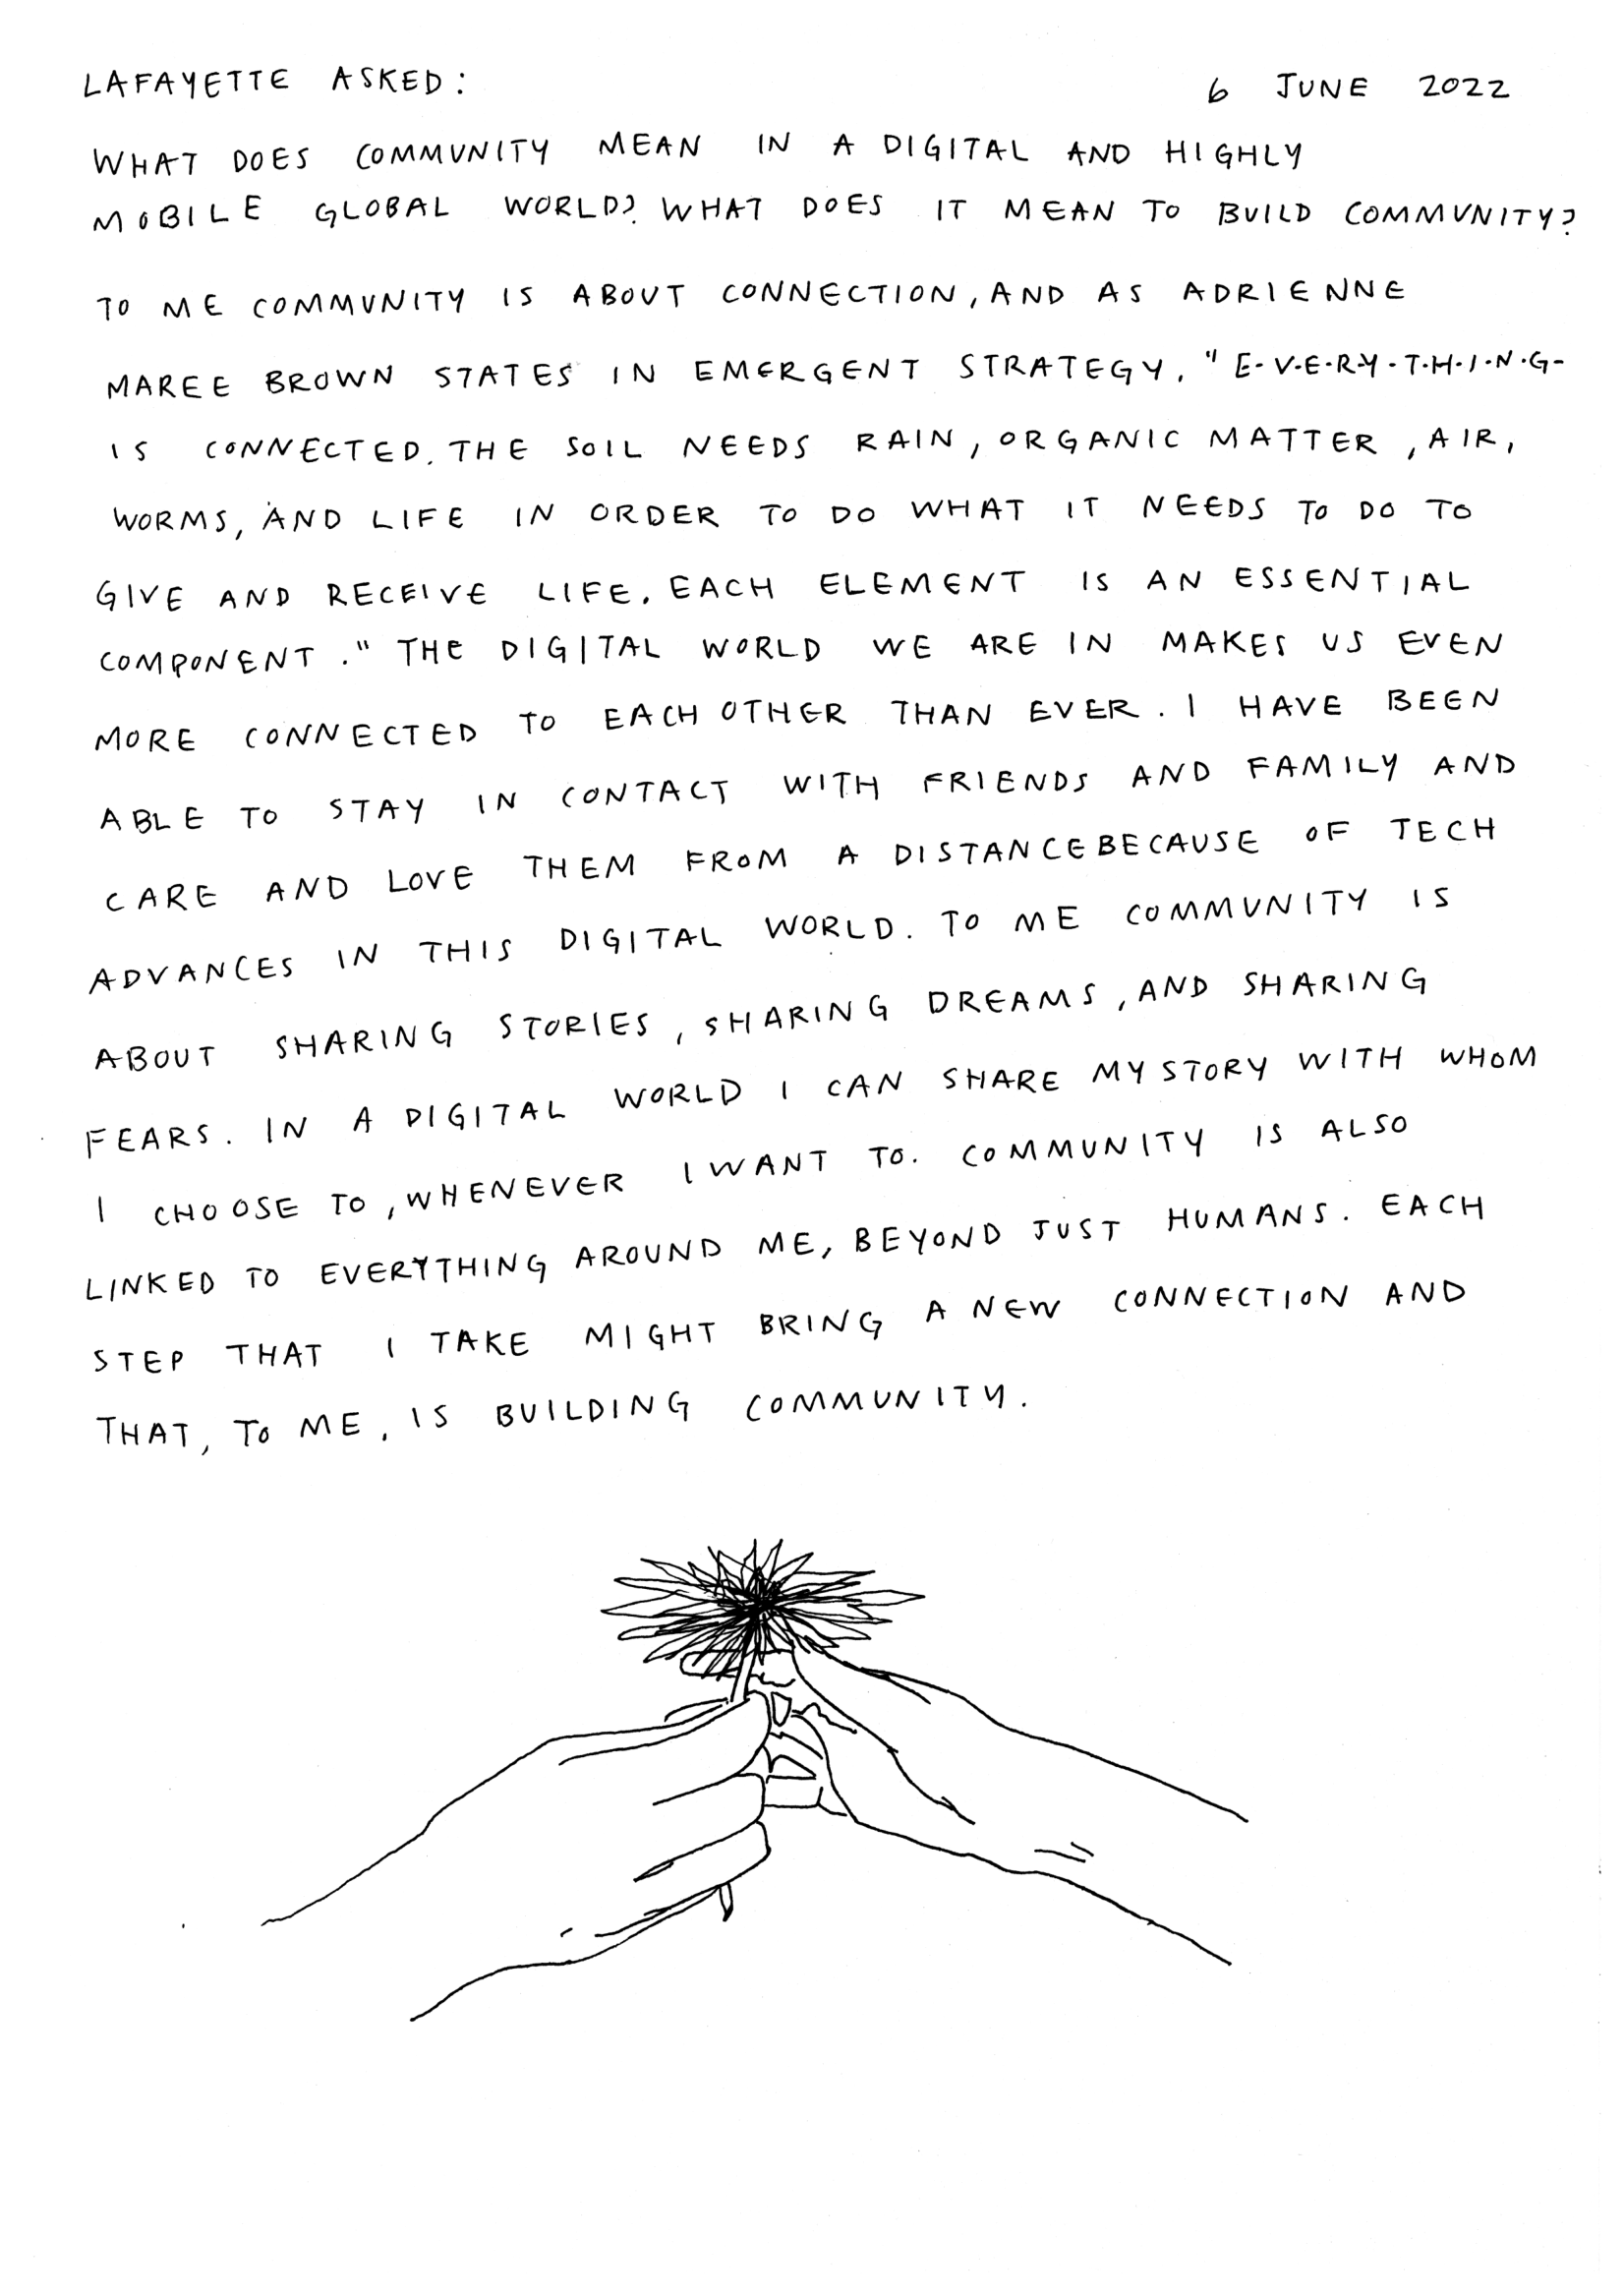 LAFAYETTE ASKED: 6 JUNE 2022
WHAT DOES COMMUNITY MEAN IN A DIGITAL AND HIGHLY
MOBILE GLOBAL WORLD? WHAT DOES IT MEAN TO BUILD COMMUNITY?
TO ME COMMUNITY IS ABOUT CONNECTION, AND AS ADRIENNE
MAREE BROWN STATES IN EMERGENT STRATEGY, "E-V-E-R-Y-T-H-I-N-G-
IS CONNECTED. THE SOIL NEEDS RAIN, ORGANIC MATTER, AIR,
WORMS, AND LIFE IN ORDER TO DO WHAT IT NEEDS TO DO TO
GIVE AND RECEIVE LIFE. EACH ELEMENT IS AN ESSENTIAL
COMPONENT." THE DIGITAL WORLD WE ARE IN MAKES US EVEN
MORE CONNECTED TO EACH OTHER THAN EVER. I HAVE BEEN
ABLE TO STAY IN CONTACT WITH FRIENDS AND FAMILY AND
CARE AND LOVE THEM FROM A DISTANCE BECAUSE OF TECH
ADVANCES IN THIS DIGITAL WORLD. TO ME COMMUNITY IS
ABOUT SHARING STORIES, SHARING DREAMS, AND SHARING
FEARS. IN A DIGITAL WORLD I CAN SHARE MY STORY WITH WHOM
I CHOOSE TO, WHENEVER I WANT TO. COMMUNITY IS ALSO
LINKED TO EVERYTHING AROUND ME, BEYOND JUST HUMANS. EACH
STEP THAT I TAKE MIGHT BRING A NEW CONNECTION AND
THAT, TO ME, IS BUILDING COMMUNITY.